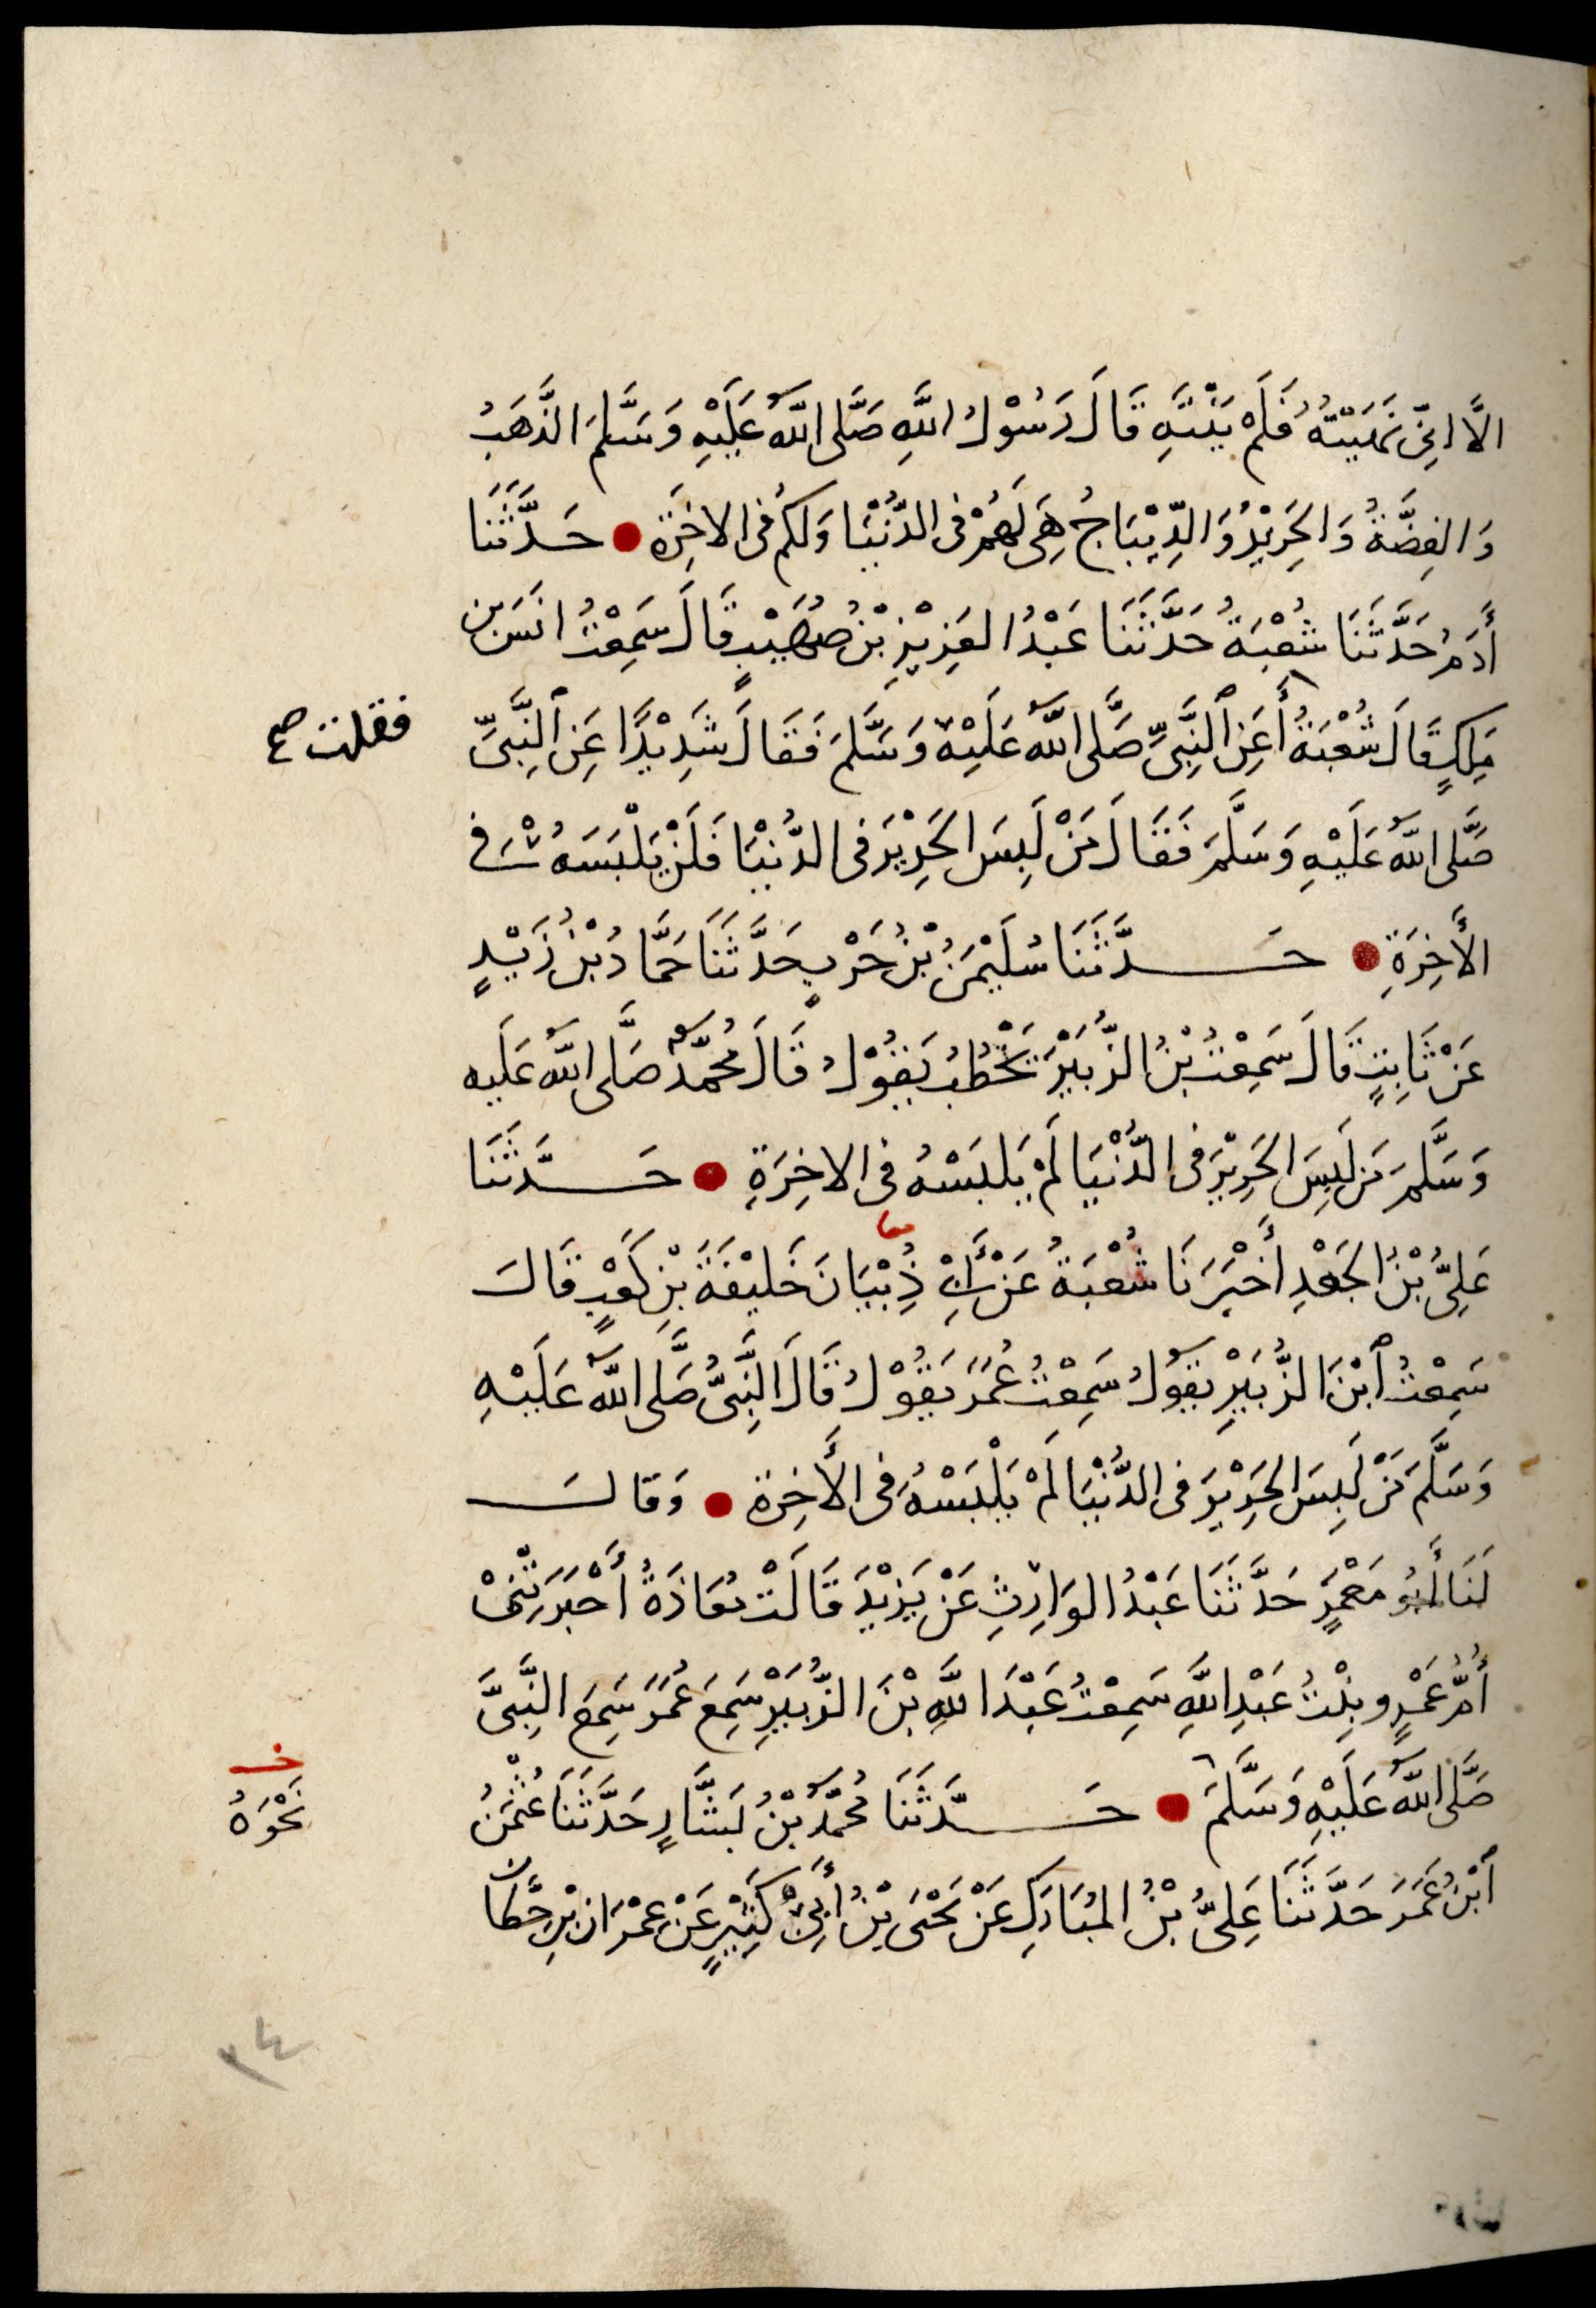 الَّا انِّى نَهَيْتُهُ فَلَمْ يَنْتَهِ قَالَ رَسُوْلُ اللّٰهِ صَلَّى اللّٰهُ عَلَيْهِ وَسَلَّمَ الذَّهَبُ
وَالفِضَّةُ وَالحَرِيْرُ وَالدِّيْبَاجُ هِىَ لَهُمْ فى الدُّنْيَا وَلَكُم فى الاخِرَةِ ● حَدَّثَنَا
أَدَمُ حَدَّثَنَا شُعْبَةُ حَدَّثَنَا عَبْدُ العَزِيْزِ بْنُ صُهَيْبٍ قَالَ سَمِعْتُ انَسَ بن
مَلِكٍ قَالَ شُعْبَةُ أَعَنِ ٱلنَّبِىِّ صَلَّى اللّٰهُ عَلَيْهِ وَسَلَّمَ فَقَالَ شَدِيْدًا عَنِ ٱلنَّبِىِّ
فقلت صح
صَلَّى اللّٰهُ عَلَيْهِ وَسَلَّمَ فَقَالَ مَنْ لَبِسَ الحَرِيْرَ فى الدُّنْيَا فَلَنْ يَلْبَسَهُ فى
الأَخِرَةِ ● حَدَّثَنَا سُلَيْمٰنُ بْنُ حَرْبٍ حَدَّثَنَا حَمَّادُ بْنُ زَيْدٍ
عَنْ ثَابِتٍ قَالَ سَمِعْتُ بْنَ الزُّبَيْرِ يَخْطُبُ يَقُوْلُ قَالَ مُحَمَّدٌ صَلَّى اللّٰهُ عَلَيه
وَسَلَّمَ مَن لَبِسَ الحَرِيْرَ فى الدُّنْيَا لَمْ يَلبَسْهُ فى الاخِرَةِ ● حَدَّثَنَا
عَلِىُّ بْنُ الجَعْدِ أَخْبَرَنَا شُعْبَةُ عَنْ أَبِىْ ذُِبْيَانَ خَلِيْفَةَ بْنِ كَعْبٍ قَالَ
سَمِعْتُ ٱبْنَ الزُّبَيْرِ يَقُوْلُ سَمِعْتُ عُمَرَ يَقُوْلُ قَالَ النَّبِىُّ صَلَّى اللّٰهُ عَلَيْهِ
وَسَلَّمَ مَنْ لَبِسَ الحَرِيْرَ فى الدُّنْيَا لَمْ يَلْبَسْهُ فى الأَخِرَة ● وَقالَ
لَنَا أَبُو مَعْمَرٍ حَدَّثَنَا عَبْدُ الوَارِثِ عَنْ يَزِيْدَ قَالَتْ مُعَاذَةُ أَخْبَرَتْنِىْ
أُمُّ عَمْرٍو بِنْتُ عَبْدِ اللّٰهِ سَمِعْتُ عَبْدَ اللّٰهِ بْنَ الزُّبَيْرِ سَمِعَ عُمَرَ سَمِعَ النَّبِىَّ
صَلَّى اللّٰهُ عَلَيْهِ وَسَلَّمَ ● حَدَّثَنَا مُحَمَّدُ بْنُ بَشَّارٍ حَدَّثَنَا عُثْمٰنُ
خـ
نَحْوَهُ
ٱبْنُ عُمَرَ حَدَّثَنَا عَلِىُّ بْنُ المُبَارَكِ عَنْ يَحْيَى بْنِ أَبِىْ كَثِيْرٍ عَنْ عِمْرَان بْنِ حِطَّان